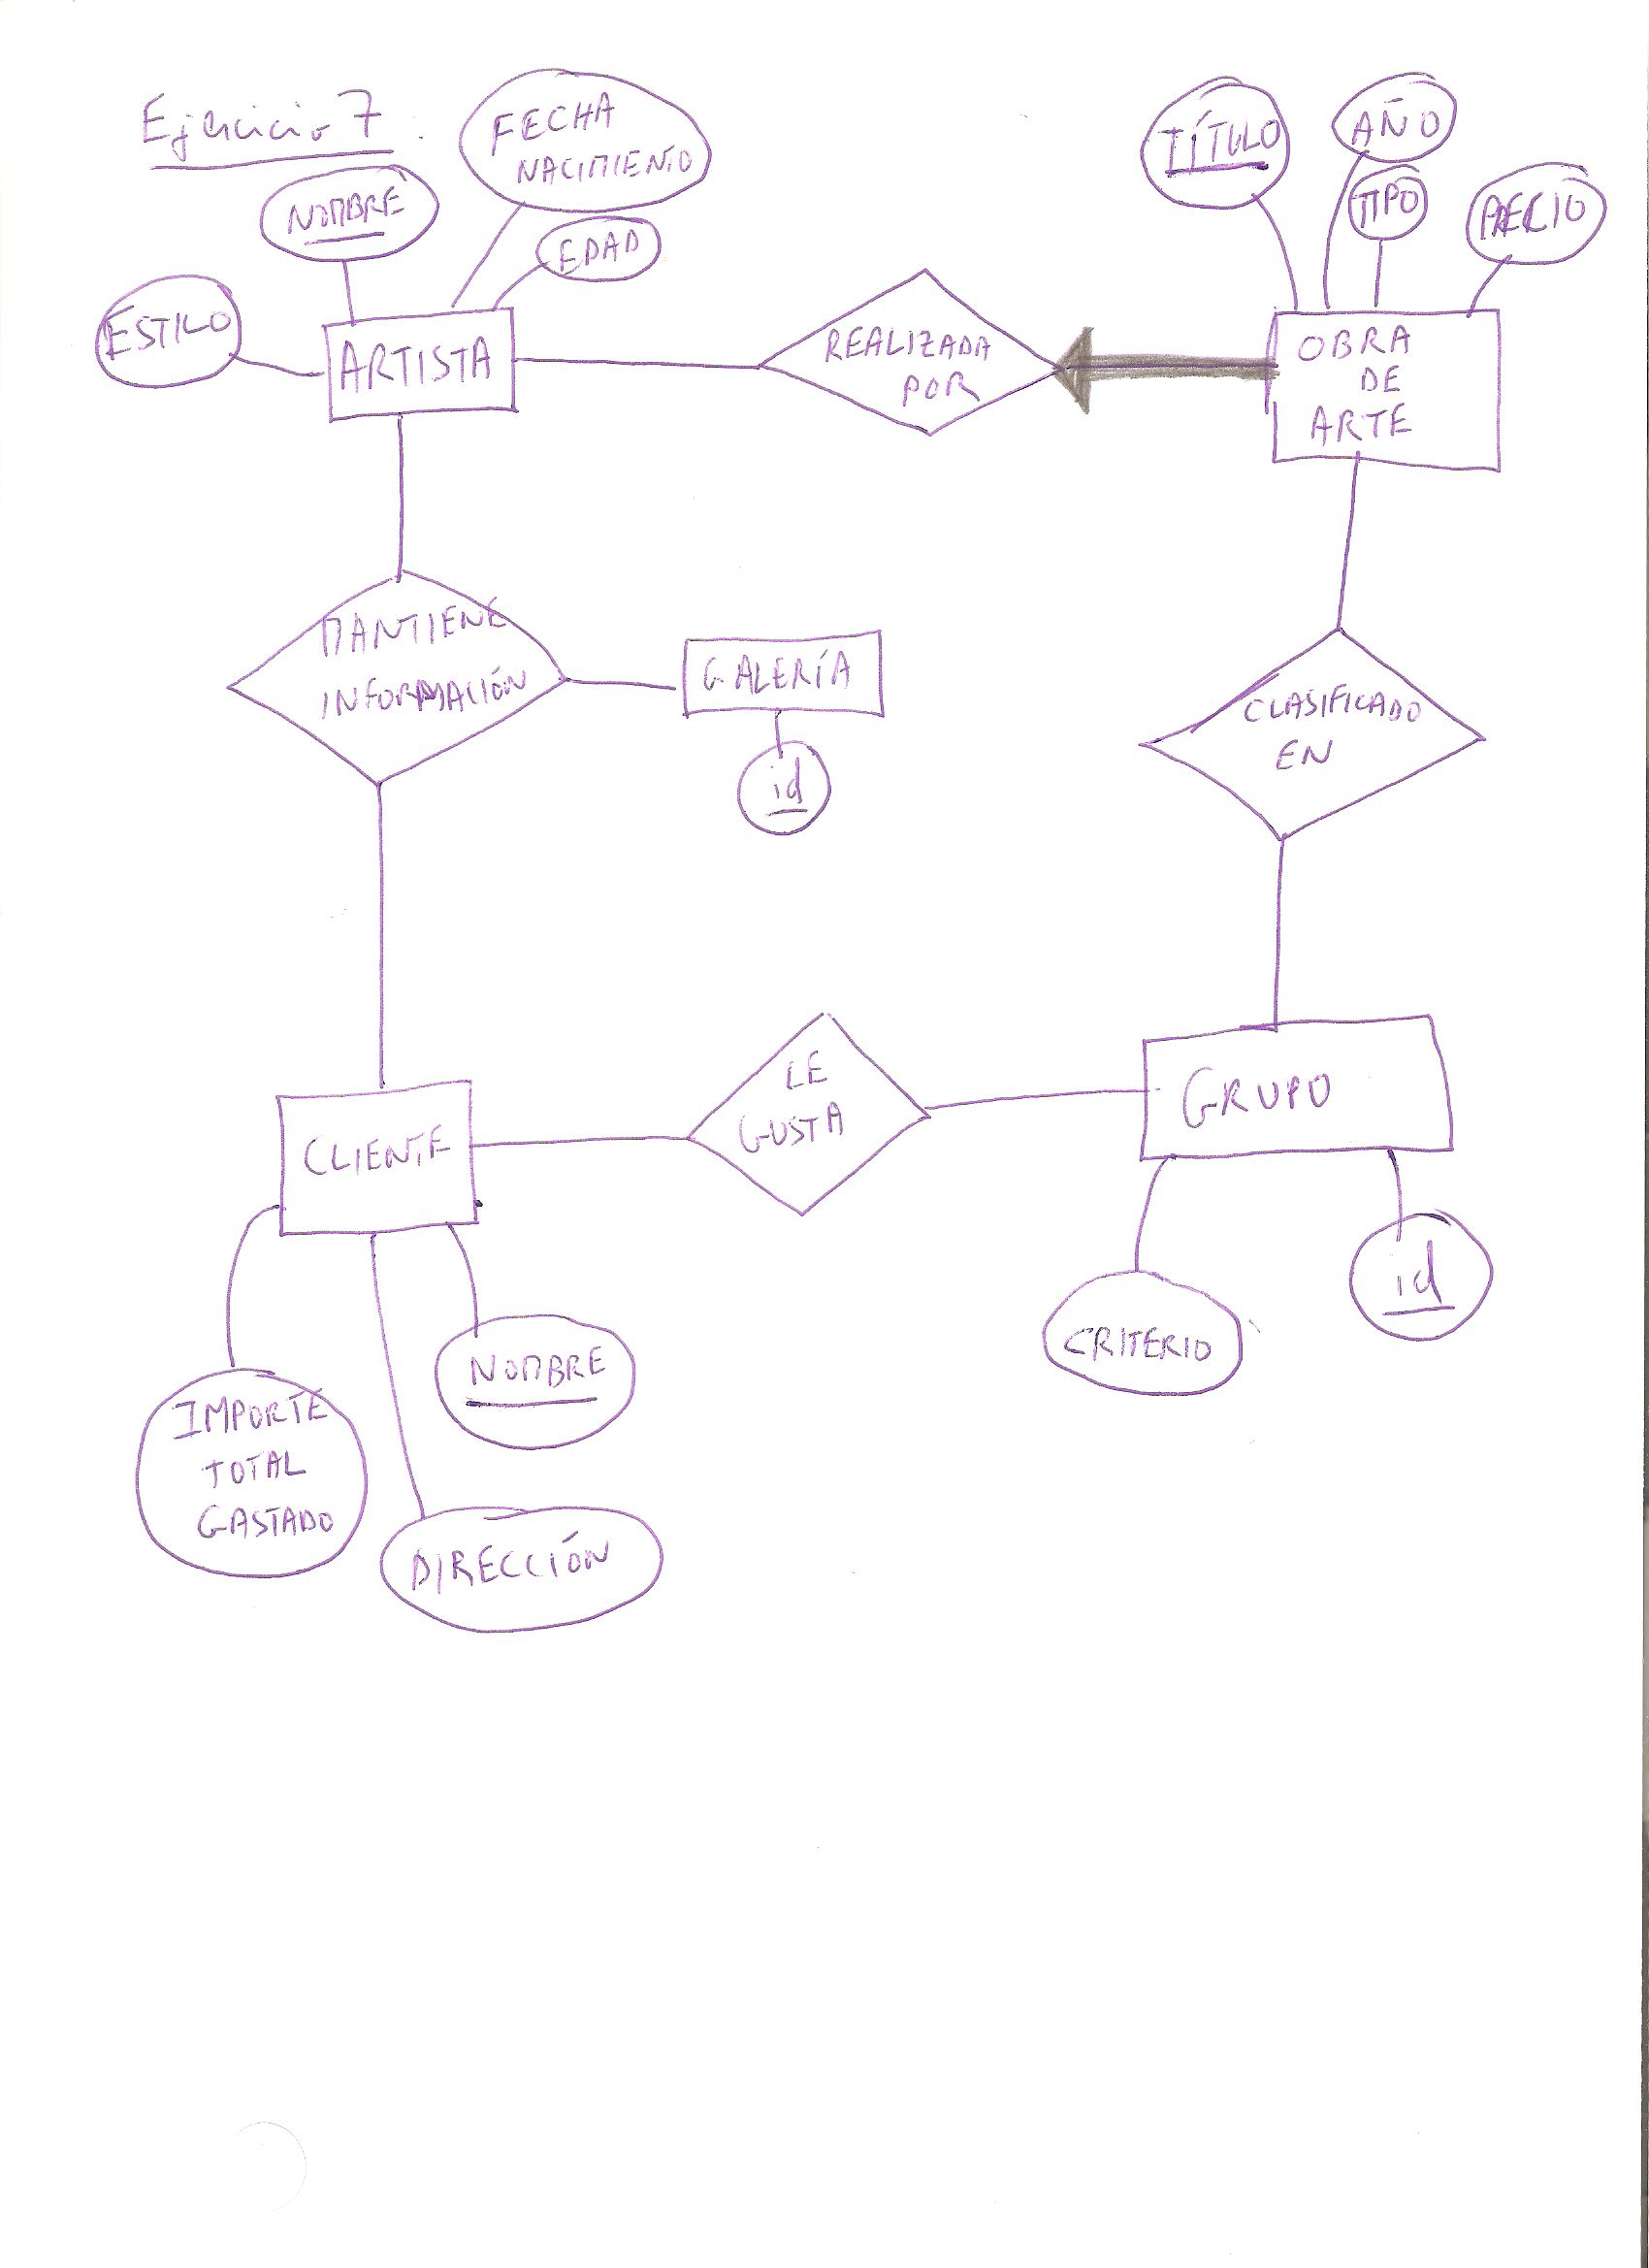 Ejercicio 7
FECHA
NACIMIENTO
NOMBRE
EDAD
ESTILO
ARTISTA
REALIZADA
POR
TÍTULO
AÑO
TIPO
PRECIO
OBRA
DE
ARTE
MANTIENE
INFORMACIÓN
GALERÍA
id
CLASIFICADO
EN
CLIENTE
LE
GUSTA
GRUPO
IMPORTE
TOTAL
GASTADO
NOMBRE
DIRECCIÓN
CRITERIO
id